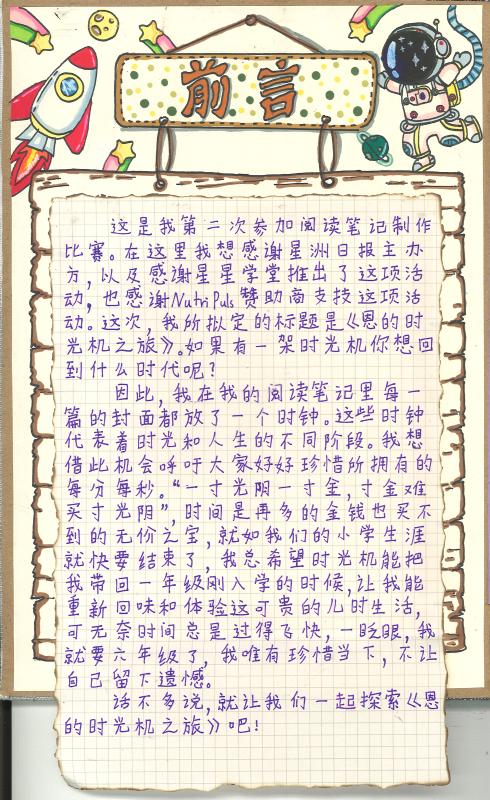 前言
这是我第二次参加阅读笔记制作
比赛。在这里我想感谢星洲日报主办
方，以及感谢星星学堂推出了这项活
动，也感谢NutriPuls赞助商支技这项活
动。这次，我所拟定的标题是《恩的时
光机之旅》。如果有一架时光机你想回
到什么时代呢？
因此，我在我的阅读笔记里每一
篇的封面都放了一个时钟。这些时钟
代表着时光和人生的不同阶段。我想
借此机会呼吁大家好好珍惜所拥有的
每分每秒。“一寸光阴一寸金，寸金难
买寸光阴”，时间是再多的金钱也买不
到的无价之宝，就如我们的小学生涯
就快要结束了，我总希望时光机能把
我带回一年级刚入学的时候，让我能
重新回味和体验这可贵的儿时生活，
可无奈时间总是过得飞快，一眨眼，我
就要六年级了，我唯有珍惜当下，不让
自己留下遗憾。
话不多说，就让我们一起探索《恩
的时光机之旅》吧！
N